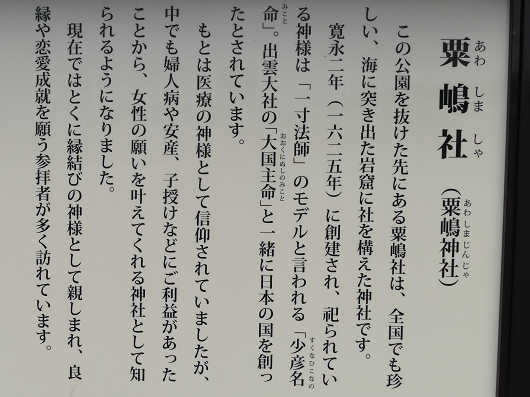 粟嶋社（粟嶋神社）
あわ しま しゃ
あわしまじんじゃ
この公園を抜けた先にある粟嶋社は、全国でも珍
しい、海に突き出た岩窟に社を構えた神社です。
寛永二年（一六二五年）に創建され、祀られてい
る神様は「一寸法師」のモデルと言われる「少彦名
すくなひこなの
命」。出雲大社の「大国主命」と一緒に日本の国を創っ
みこと
おおくにぬしのみこと
たとされています。
もとは医療の神様として信仰されていましたが、
中でも婦人病や安産、子授けなどにご利益があった
ことから、女性の願いを叶えてくれる神社として知
られるようになりました。
現在ではとくに縁結びの神様として親しまれ、良
縁や恋愛成就を願う参拝者が多く訪れています。